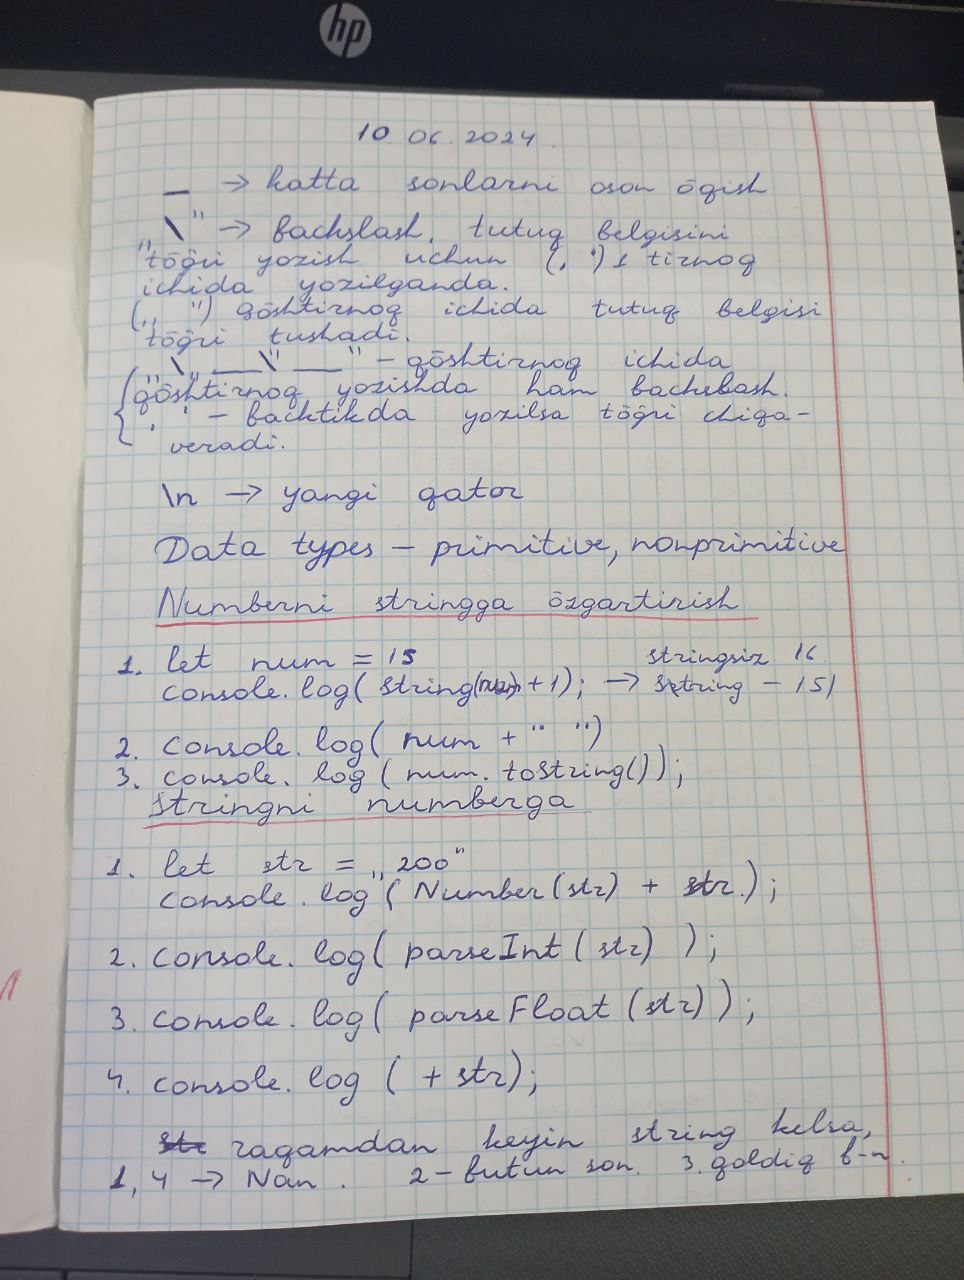 hp
10.06.2024.
_ → katta sonlarni oson õqish
„\" → backslash, tutuq belgisini
tõğri yozish uchun (, ') 1 tirnoq
ichida yozilganda.
(„ ") qõshtirnoq ichida tutuq belgisi
tõğri tushadi.
"\„___\"___" - qõshtirnoq ichida
qõshtirnoq yozishda ham backslash.
, ' - backtikda yozilsa tõğri chiqa-
veradi.
\n → yangi qator
Data types - primitive, nonprimitive
Numberni stringga õzgartirish
1. let num = 15 stringsiz 16
console.log( string(num) + 1); → string - 151
2. console.log( num + " ")
3. console.log ( num. toString());
stringni numberga
1. let str = „200"
console.log ( Number(str) + str.);
2. console.log( parseInt ( str) );
3. console.log( parseFloat (str) );
4. console.log ( + str);
str raqamdan keyin string kelsa,
1, 4 → Nan. 2 - butun son. 3. qoldiq b-n.